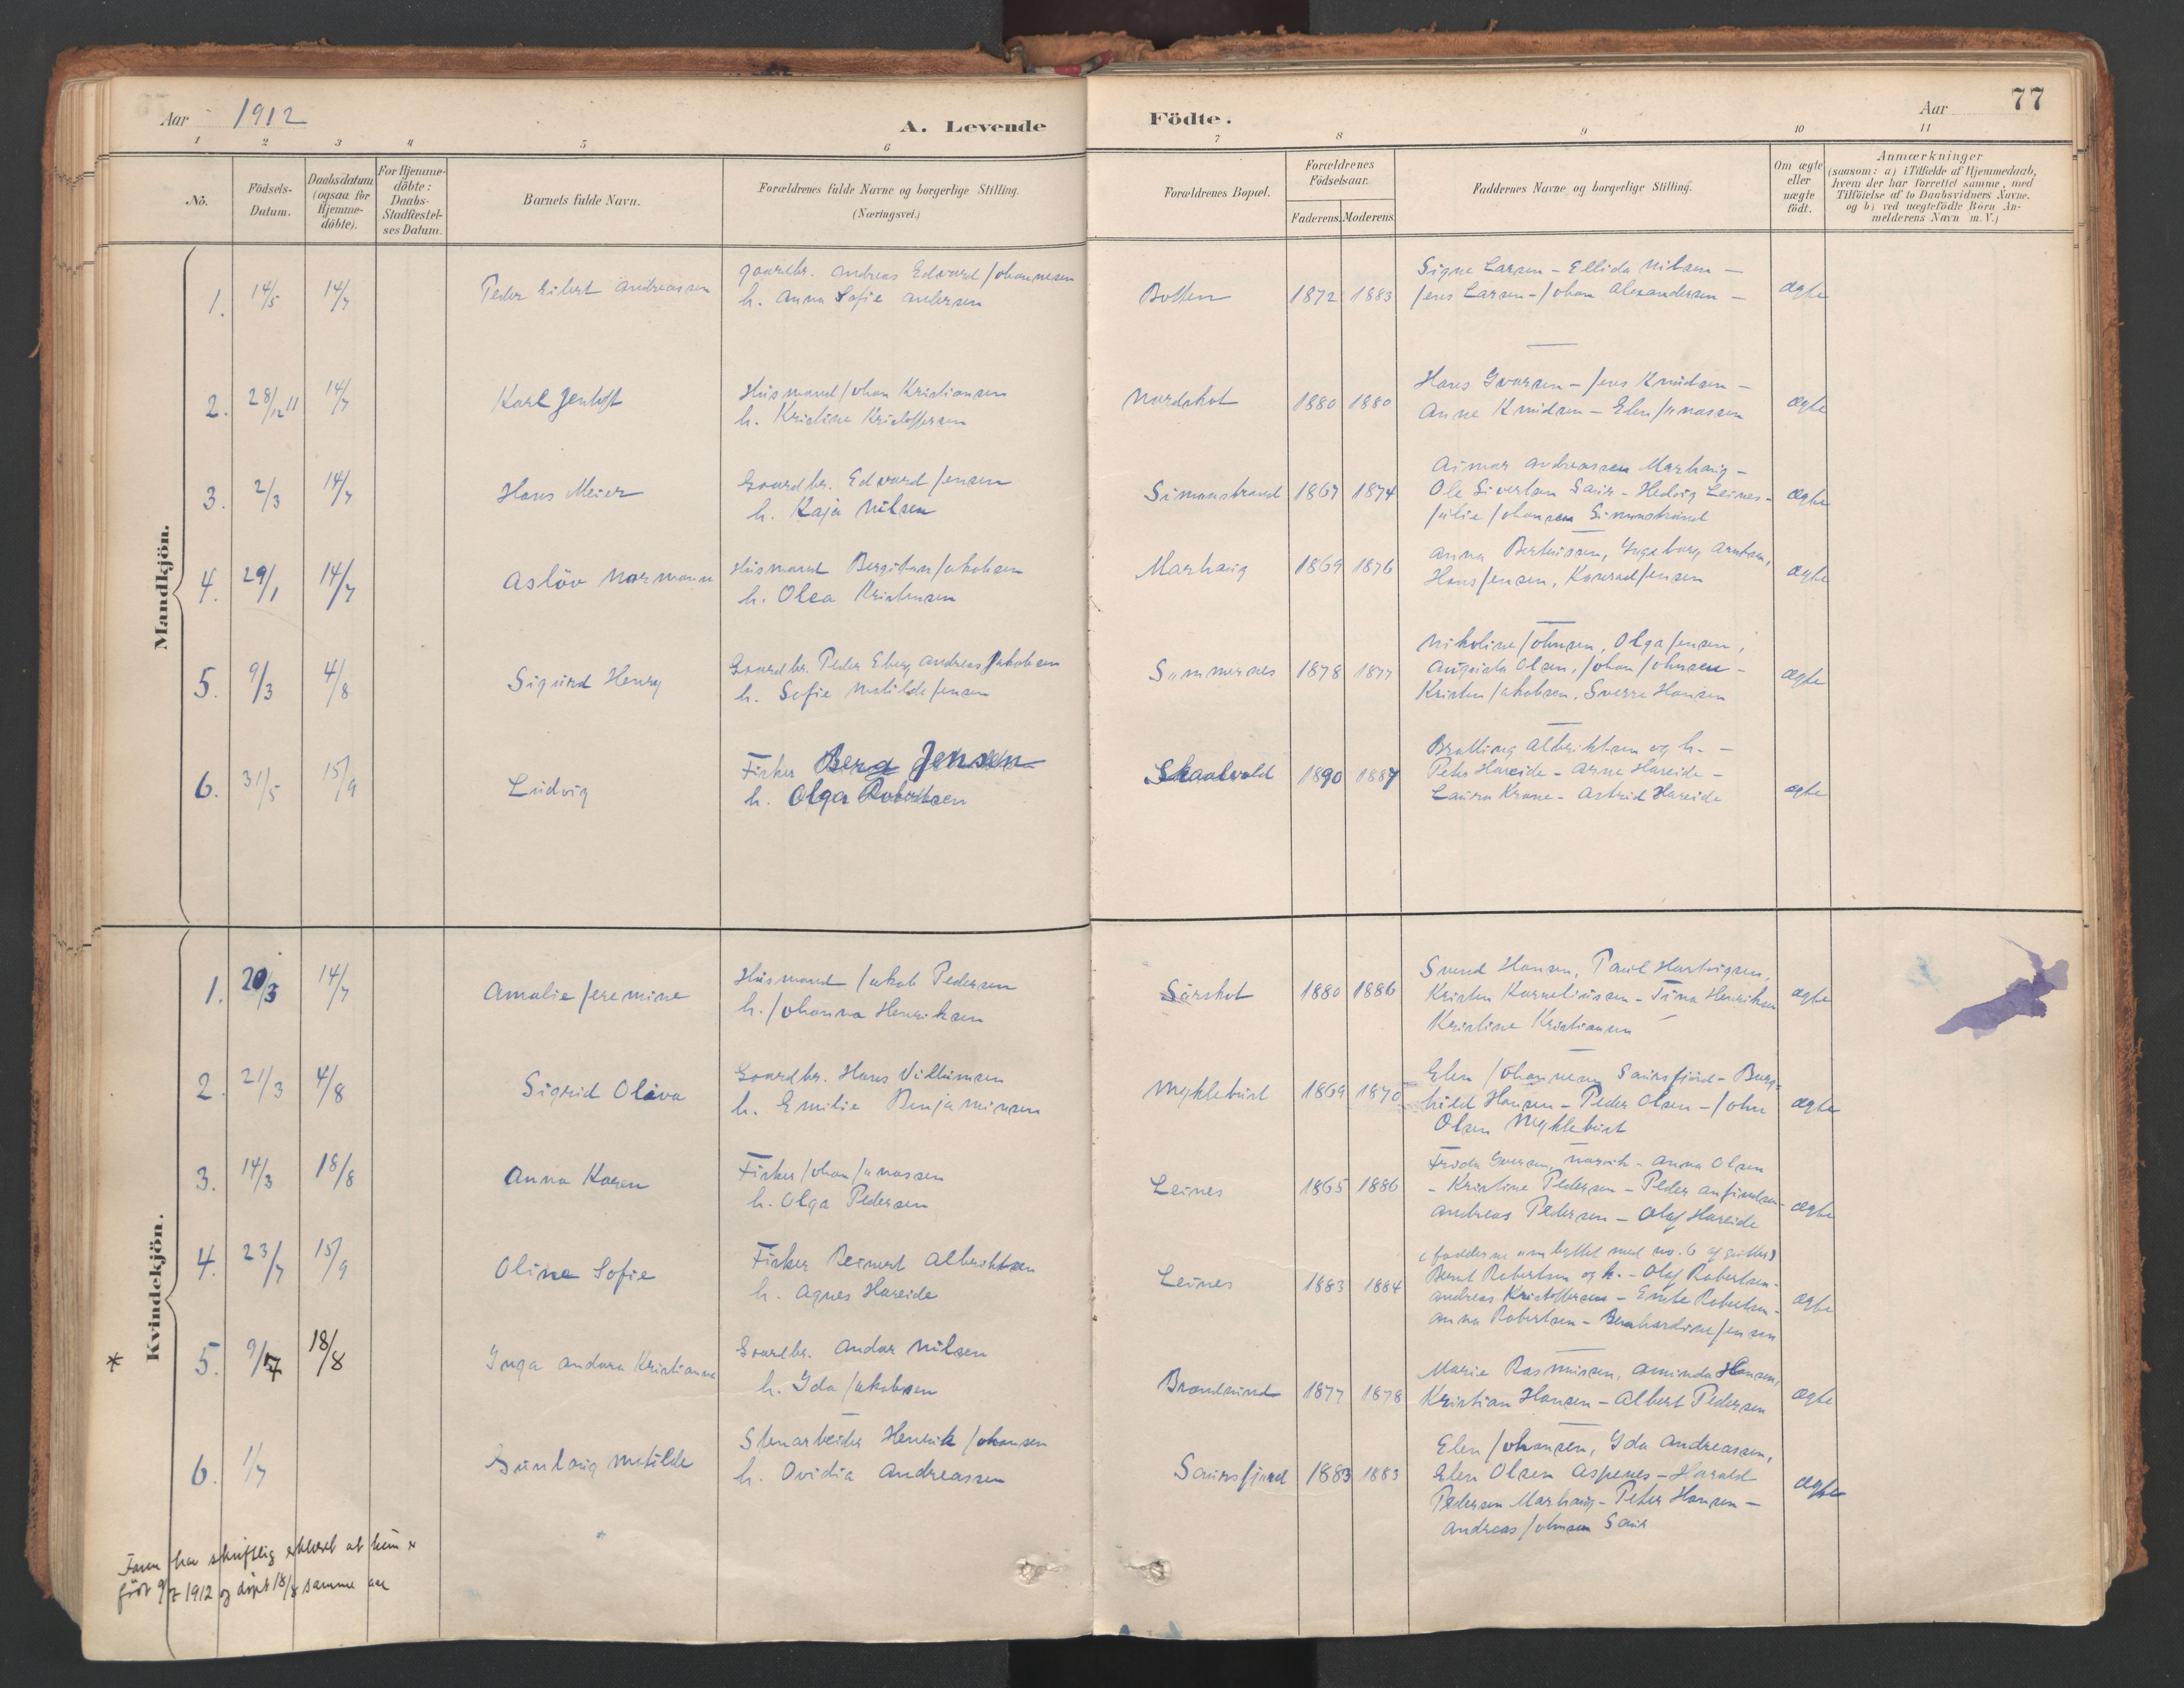 Aar 1912 A. Levende Födte. Aar 77
1 2 3 4 5 6 7 8 9 10 11
No. Födsels-Datum. Daabsdatum (ogsaa for Hjemme-döbte). For Hjemme-döbte: Daabs-Stadfæstel-ses Datum. Barnets fulde Navn. Forældrenes fulde Navne og borgerlige Stilling. (Næringsvei.) Forældrenes Bopæl. Forældrenes Födselsaar. Faderens. Moderens. Faddernes Navne og borgerlige Stilling. Om ægte eller uægte födt. Anmærkninger (saasom: a) i Tilfælde af Hjemmedaab, hvem der har forrettet samme, med Tilföielse af to Daabsvidners Navne. og b) ved uægtefödte Börn Anmelderens Navn m. V.)
Mandkjön.
1. 14/5 14/7 Peder Eilert Andreassen gaardbr. Andreas Edvard Johannesen
h. Anna Sofie Andersen
Botten 1872 1883 Signe Larsen - Ellida Nilsen -
Jens Larsen - Johan Alexandersen - ægte
2. 28/12 11 14/7 Karl Jentoft Husmand Johan Kristiansen
h. Kristine Kristoffersen
Nordskot 1880 1880 Hans Ivarsen - Jens Knudsen -
Anne Knudsen - Elen Jonassen ægte
3. 2/3 14/7 Hans Meier Gaardbr. Edvard Jensen
h. Kaja Nilsen
Simonstrand 1867 1874 Aimar Andreassen Marhaug -
Ole Sivertsen Saur - Hedvig Leines -
Julie Johansen Simonstrand ægte
4. 29/1 14/7 Asløv Normann Husmand Bergiton Jakobsen
h. Olea Kristensen
Marhaug 1869 1876 Anna Berteussen, Ingeborg Arntsen,
Hans Jensen, Konrad Jensen ægte
5. 9/3 4/8 Sigurd Henry Gaardbr. Peder Eberg Andreas Jakobsen
h. Sofie Matilde Jensen
Sommernes 1878 1877 Nikoline Johnsen, Olga Jensen,
Augusta Olsen, Johan Johnsen -
Kristen Jakobsen, Sverre Hansen ægte
6. 31/5 15/9 Ludvig Fisker Berg Jensen
h. Olga Robertsen
Skaalvold 1890 1887 Bratting Albriktsen og h. -
Peter Hareide - Arne Hareide -
Laura Krane - Astrid Hareide ægte
Kvindekjön.
1. 20/3 14/7 Amalie Jeremine Husmand Jakob Pedersen
h. Johanna Henriksen
Sørskot 1880 1886 Svend Hansen, Paul Hartvigsen,
Kristen Korneliussen - Tina Henriksen
Kristine Kristiansen ægte
2. 21/3 4/8 Sigrid Oliva Gaardbr. Hans Villumsen
h. Emilie Benjaminsen
Myklebust 1869 1870 Elen Johannesen Saursfjord - Borg-
hild Hansen - Peder Olsen - John
Olsen Myklebust ægte
3. 14/3 18/8 Anna Karen Fisker Johan Jonassen
h. Olga Pedersen
Leines 1865 1886 Frida Iversen, Narvik - Anna Olsen
- Kristine Pedersen - Peder Anfindsen -
Andreas Pedersen - Olaf Hareide ægte
4. 23/7 15/9 Oline Sofie Fisker Reinert Albriktsen
h. Agnes Hareide
Leines 1883 1884 (fadderne ombyttet med no. 6 af gutter)
Bernt Robertsen og h. - Olaf Robertsen -
Andreas Kristoffersen - Grete Robertsen -
Anna Robertsen - Bernhardine Jensen ægte
* 5. 9/7 18/8 Inga Andora Kristianne Gaardbr. Andor Nilsen
h. Ida Jakobsen
Brandsund 1877 1878 Marie Rasmussen, Aminda Hansen,
Kristian Hansen - Albert Pedersen ægte
6. 1/7 Gunlaug Matilde Stenarbeider Henrik Johansen
h. Ovidia Andreassen
Saursfjord 1883 1883 Elen Johansen, Ida Andreassen,
Elen Olsen Aspenes - Harald
Pedersen Marhaug - Peter Hansen -
Andreas Johnsen Saur ægte
Faren har skriftlig erklæret at hun er
født 9/7 1912 og døpt 18/8 samme aar